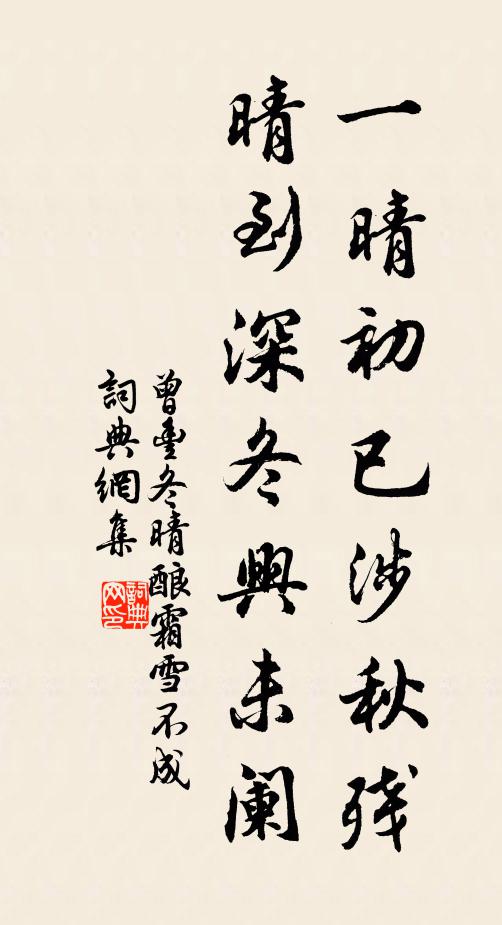 一晴初已涉秋残
晴到深冬興未阑
曾豊冬晴酿霜雪不成
詞典網集
詞典网印